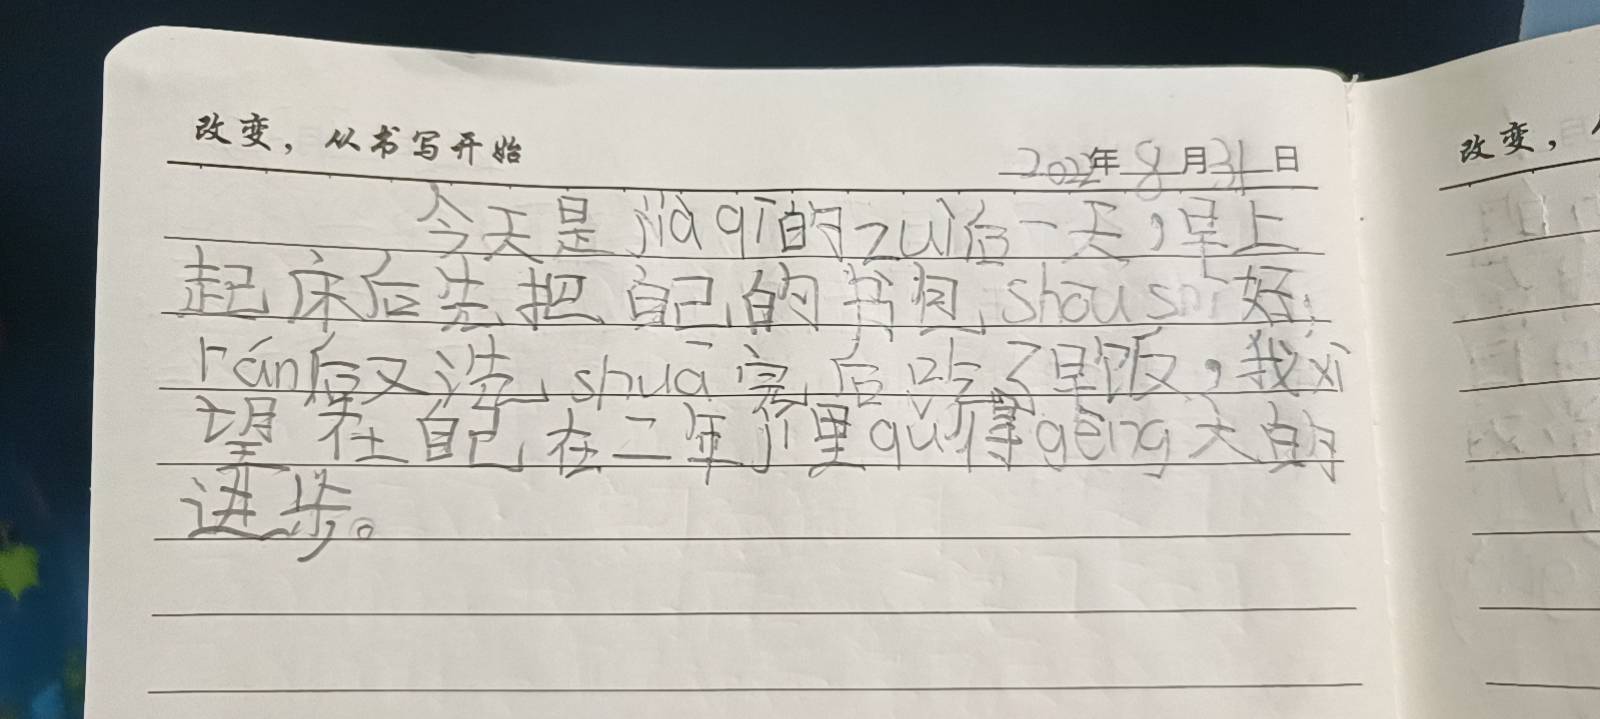 改变，从书写开始
2022年8月31日
今天是jià qī的zuì后一天，早上
起床后先把自己的书包shōu shí好，
rán后又洗shuā完后吃了早饭，我xī
望在自己在二年jí里qǔ得gèng大的
进步。
改变，